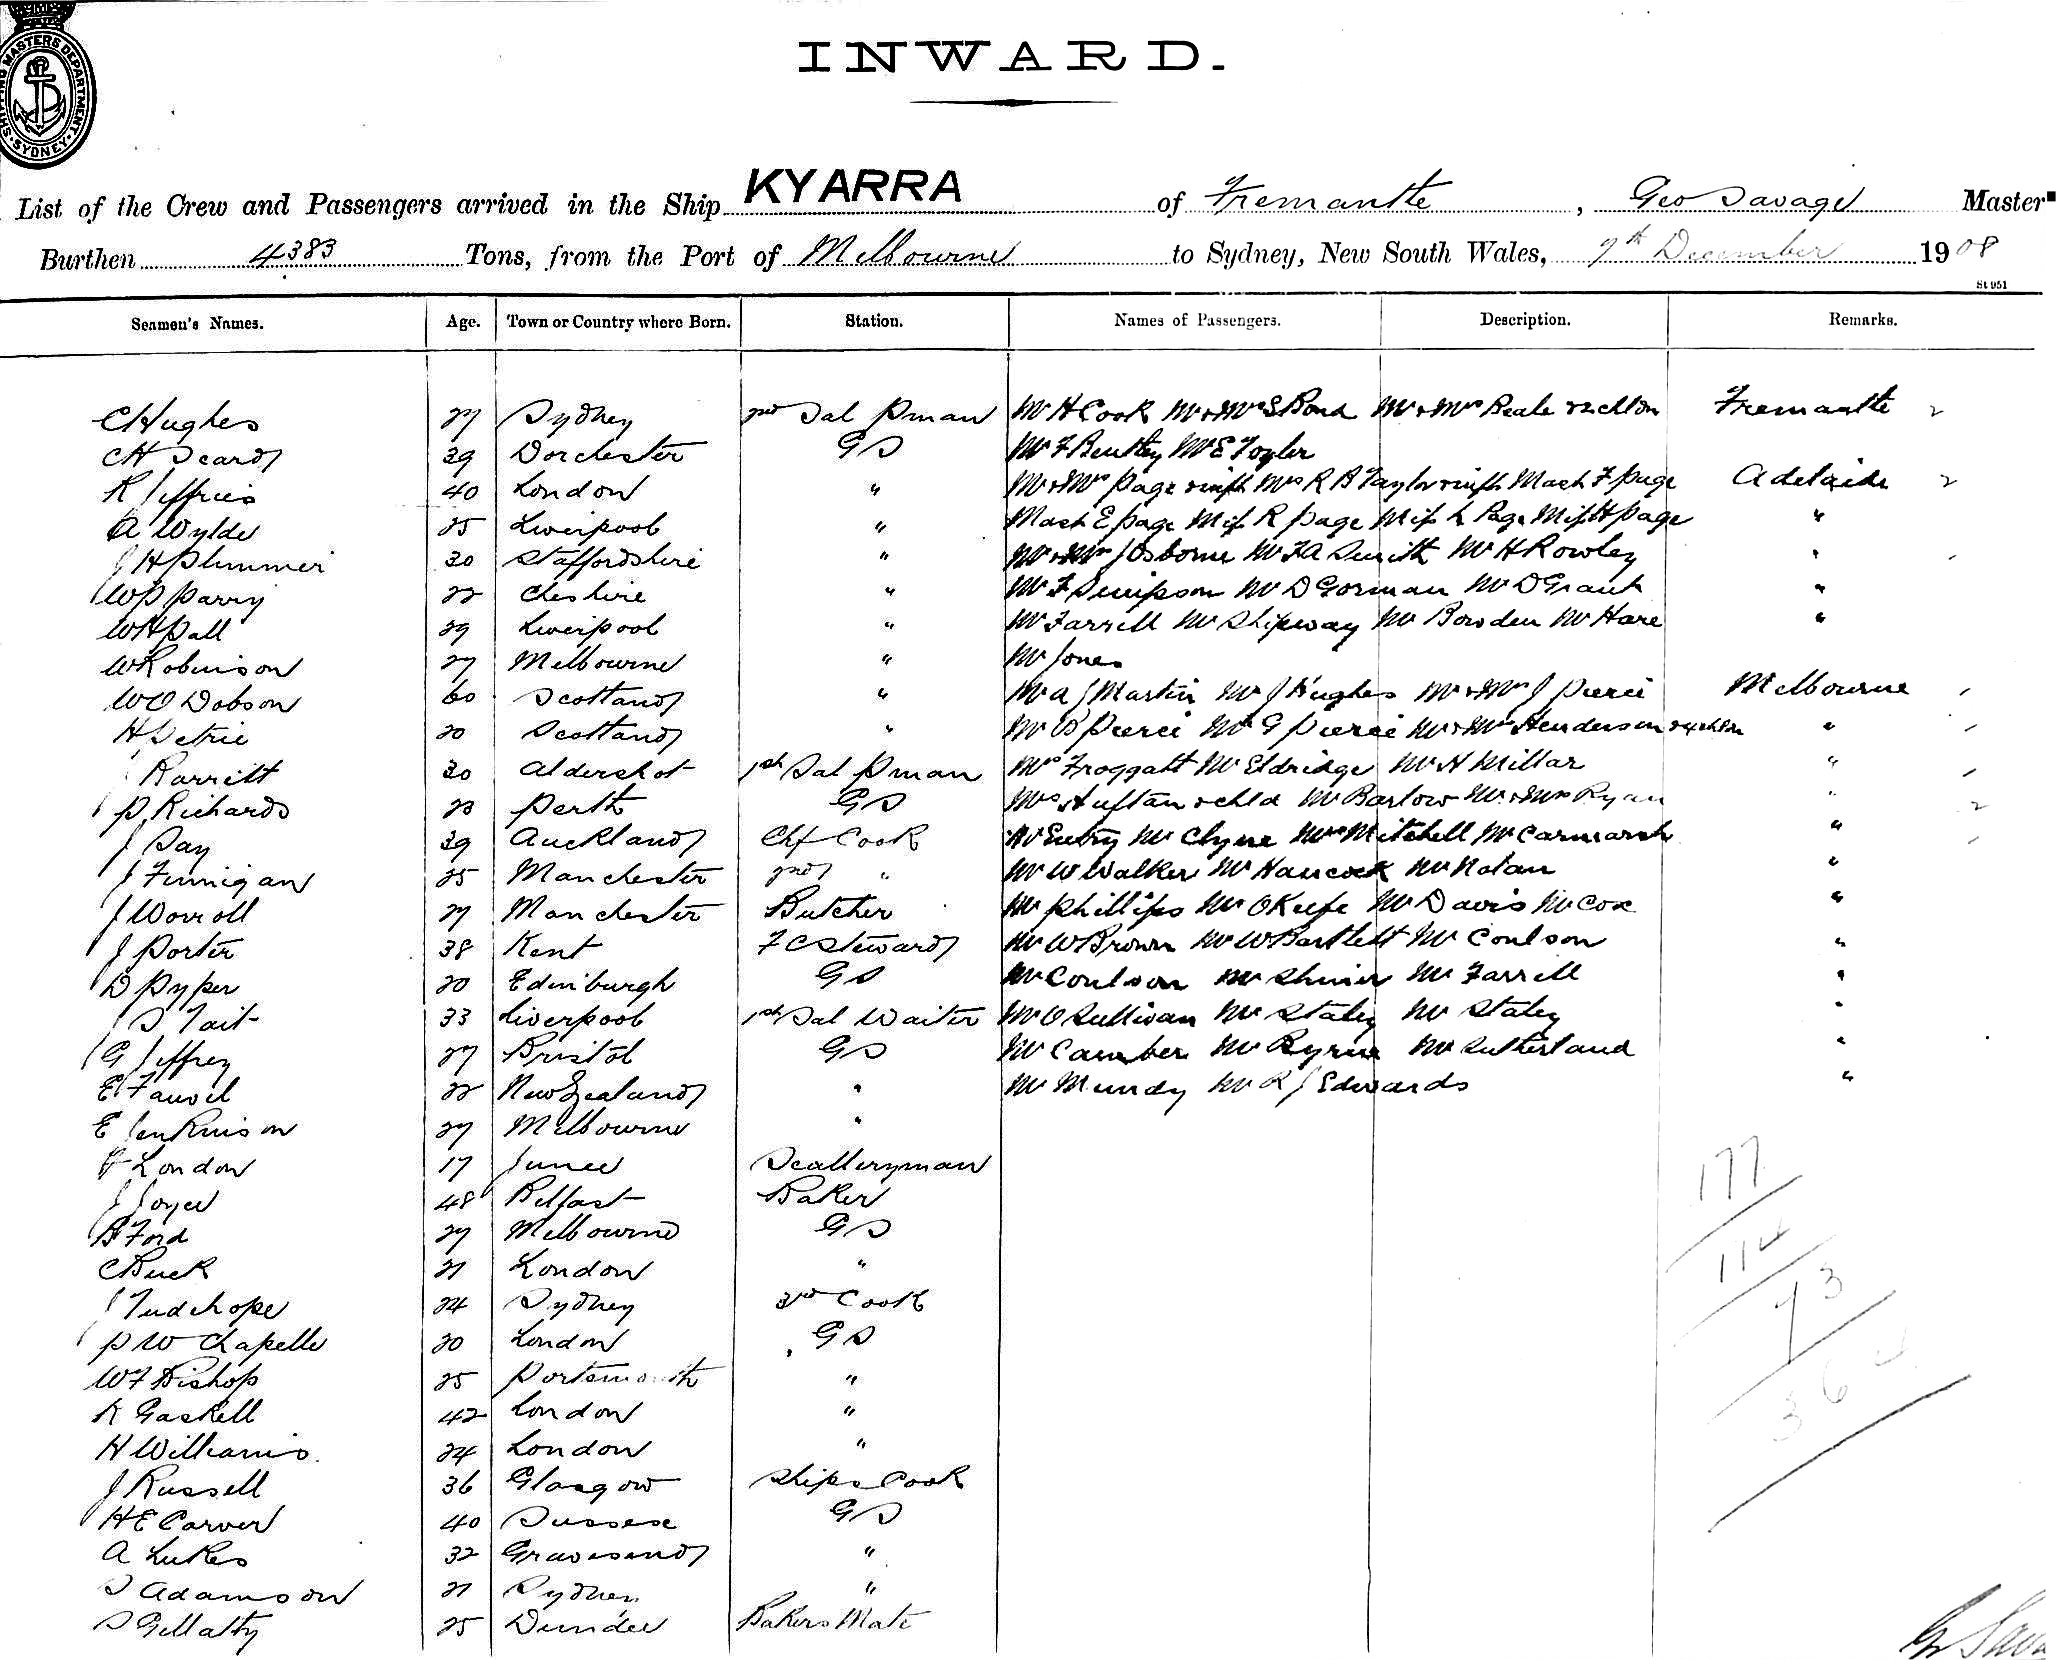 SHIPPING MASTERS DEPARTMENT. SYDNEY.
INWARD.
List of the Crew and Passengers arrived in the Ship KYARRA of Fremantle, Geo Savage Master
Burthen 4383 Tons, from the Port of Melbourne to Sydney, New South Wales, 7th December 1908
St 951
Seamen's Names. Age. Town or Country where Born. Station. Names of Passengers. Description. Remarks.
C Hughes 27 Sydney 2nd Sal Pman Mr H Cook Mr & Mrs S Bond Mr & Mrs Beale & 2 chldn Fremantle 2
C H Scard 39 Dorchester GS Mr F Bentley Mr E Foyler
R Jeffries 40 London " Mr & Mrs Page & inft Mrs R B Taylor & inft Mast F Page Adelaide 2
A Wylde 25 Liverpool " Mast E Page Miss R Page Miss L Page Miss H Page "
J H Plummer 30 Staffordshire " Mr & Mrs J Osborne Mr F A Smith Mr H Rowley "
W P Parry 22 Cheshire " Mr F Simpson Mr D Gorman Mr D Grant "
W H Pall 29 Liverpool " Mr Farrell Mr Shipway Mr Bowden Mr Hare "
W Robinson 27 Melbourne " Mr Jones
W O Dobson 60 Scotland " Mr A J Martin Mr J Hughes Mr & Mrs J Pierce Melbourne
H Petrie 20 Scotland " Mr B Pierce Mr G Pierce Mr & Mrs Henderson & 4 chldn "
Barritt 30 Aldershot 1st Sal Pman Mrs Froggatt Mr Eldridge Mr H Millar "
P Richards 23 Perth GS Mrs Huftan & chld Mr Barlow Mr & Mrs Ryan " 2
J Day 39 Auckland Chf Cook Mr Entry Mr Clyne Mrs Mitchell Mr Carmarsh "
J Finnigan 25 Manchester 2nd " Mr W Walker Mr Hancock Mr Nolan "
J Worroll 27 Manchester Butcher Mr Phillips Mr OKeefe Mr Davis Mr Cox "
J Porter 38 Kent F C Steward Mr W Brown Mr W Bartlett Mr Coulson "
D Pyper 20 Edinburgh GS Mr Coulson Mr Shiner Mr Farrell "
J S Tait 33 Liverpool 1st Sal Waiter Mr O Sullivan Mr Staley Mr Staley "
G Jeffrey 27 Bristol GS Mr Camber Mr Byrne Mr Sutherland "
E Fauvel 22 New Zealand " Mr Mundy Mr R J Edwards "
E Jenkinson 27 Melbourne "
F London 17 Junee Sculleryman
J Joyce 48 Belfast Baker
B Ford 27 Melbourne GS
C Buck 21 London "
J Tudehope 24 Sydney 3rd Cook
P W Chapelle 20 London GS
W F Bishop 25 Portsmouth "
R Gaskell 42 London "
H Williams 24 London "
J Russell 36 Glasgow Ships Cook
H E Carver 40 Sussex GS
A Lukes 32 Gravesend "
S Adamson 21 Sydney "
S Gellatly 25 Dundee Bakers Mate
177
114
73